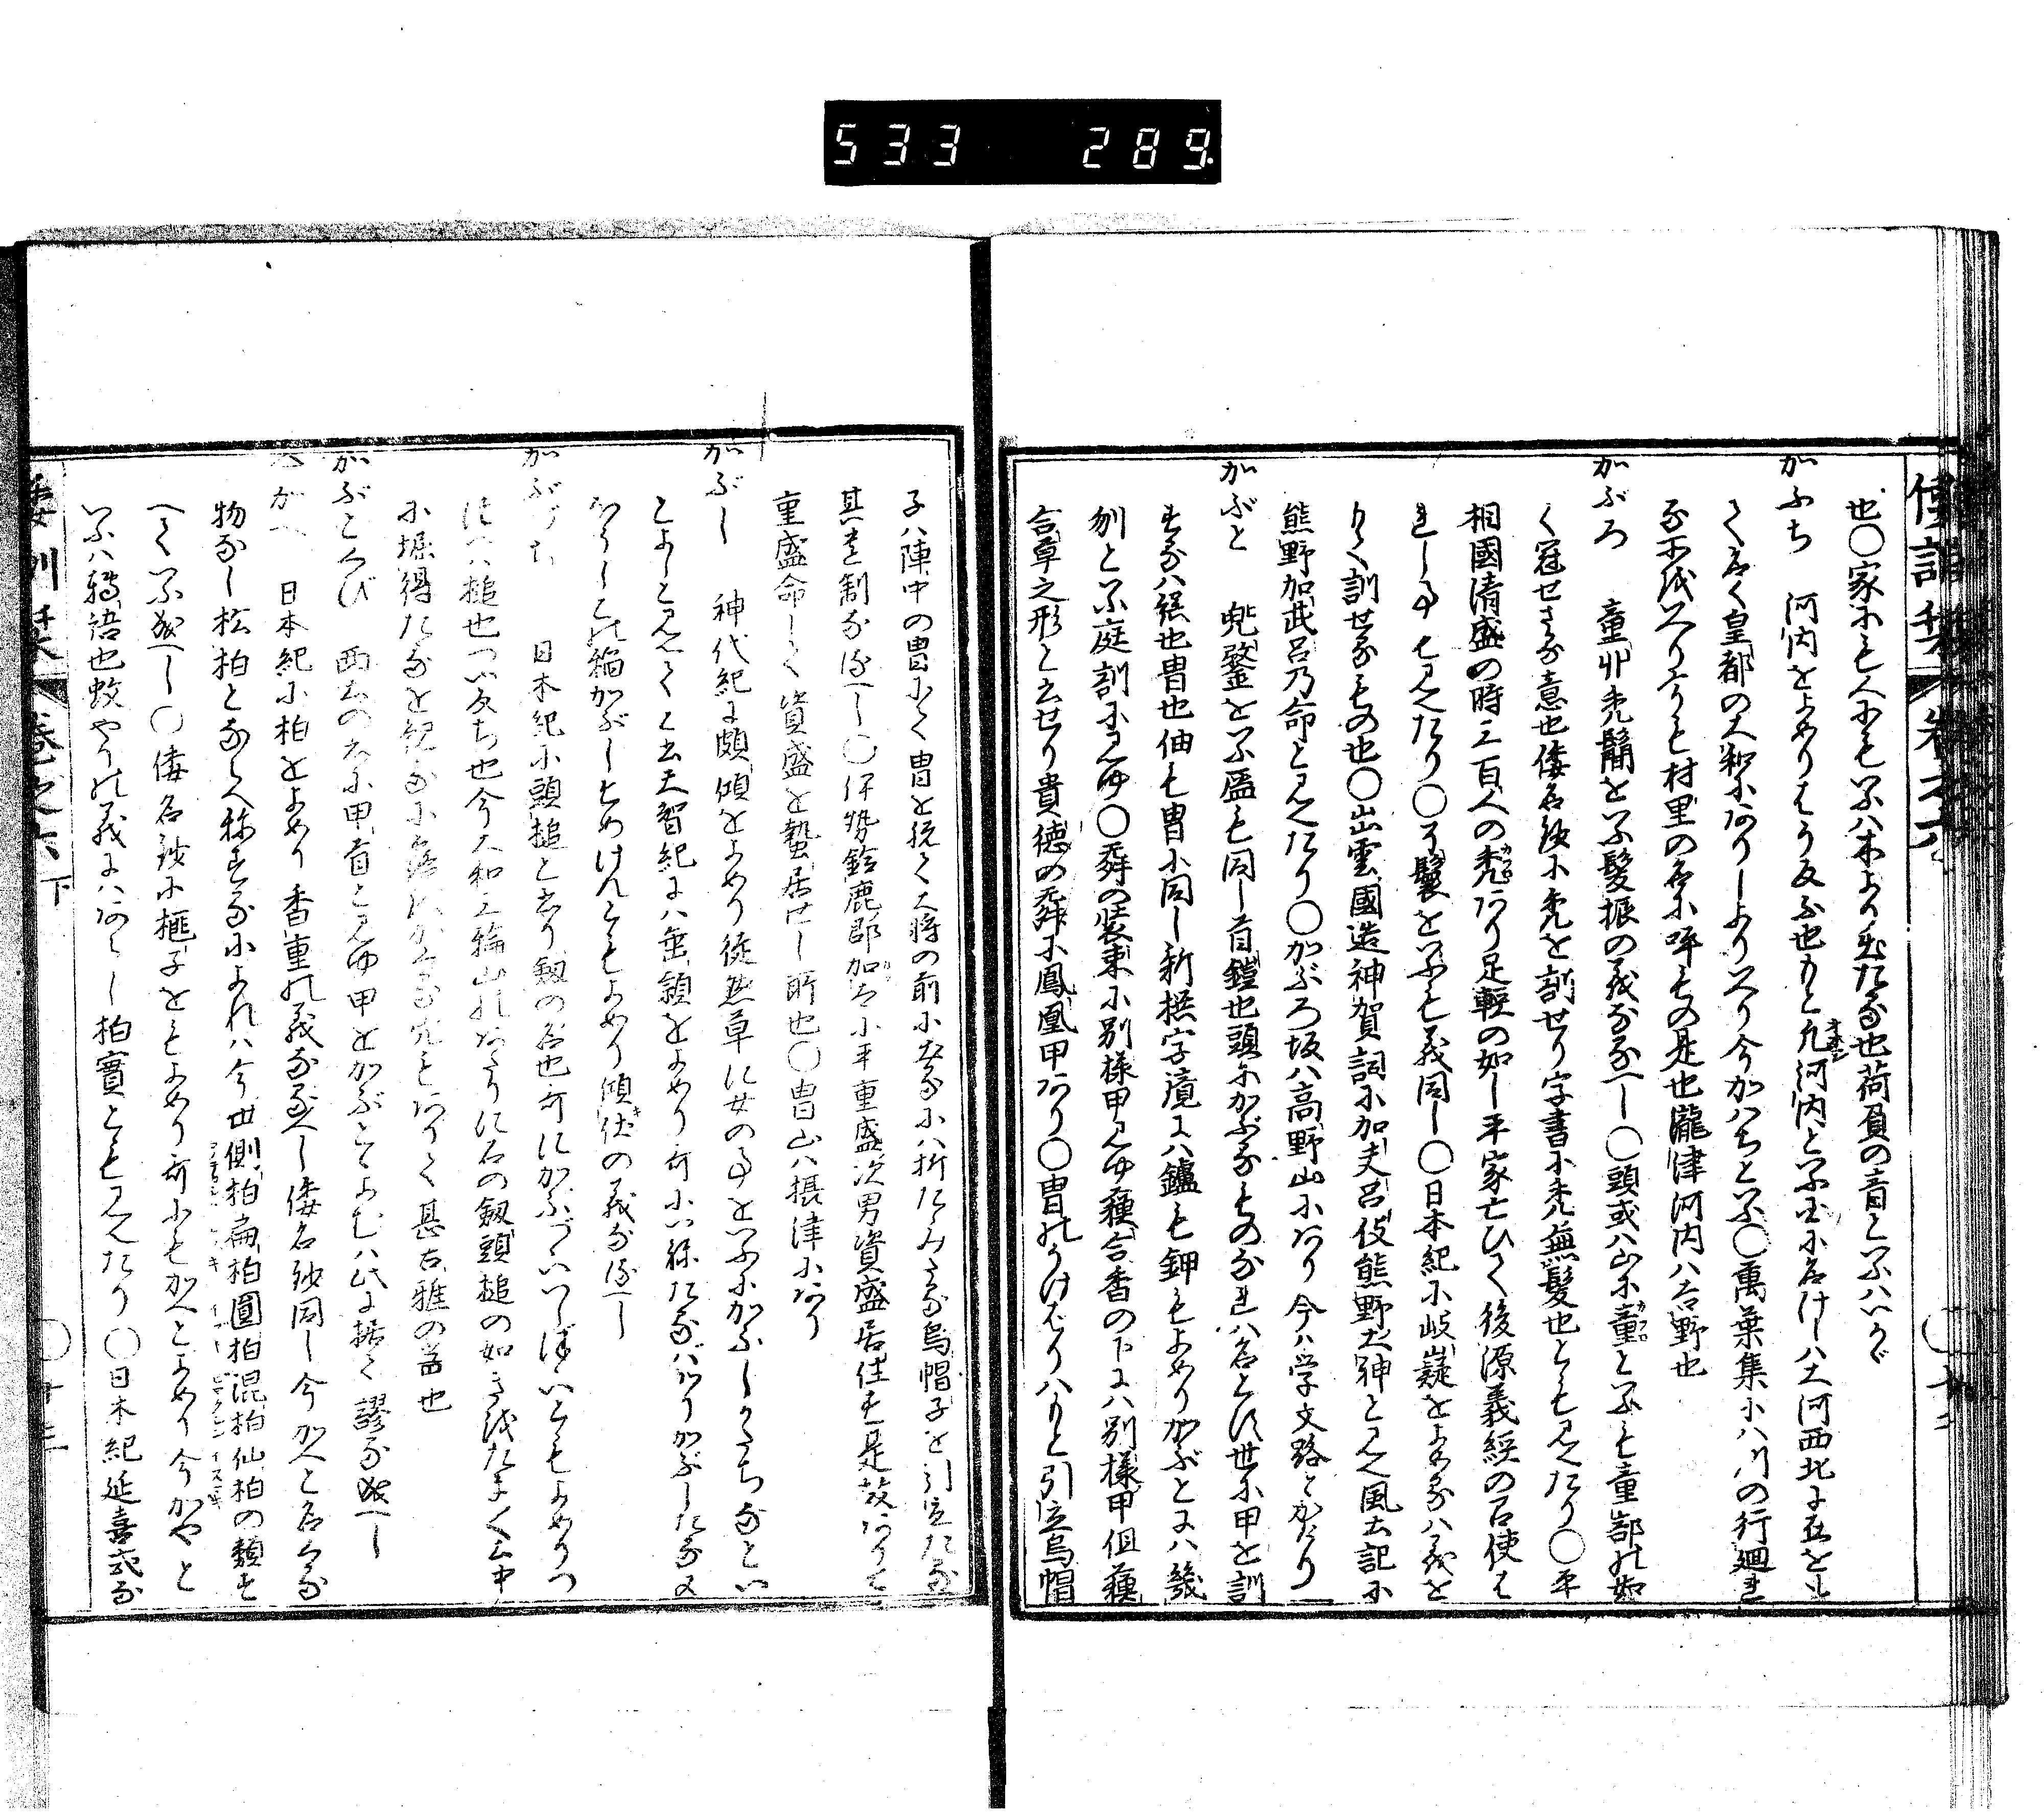 533 289
也〇家にも人にもいふハ木より出たる也荷負の音といふハいかゞ
かふち 河内をよめりはう反ふ也もと凡河内といふ国に名けしハ大河西北に在をもて
名く皇都の大和にありしよりいへり今かはちといふ〇萬葉集に八川の行廻れ
る所をいへりうりも村里の名に呼もの是也瀧津河内ハ吉野也
かぶろ 童丱禿鬝をいふ髪振の義なるへし〇頭或ハ山に童といふも童部の如
く冠せさる意也倭名鈔に禿を訓せり字書に禿無髪也とも見えたり〇平
相國清盛の時三百人の禿あり足軽の如し平家亡ひて後源義経の召使は
れし事も見えたり〇鬟をいふも義同し〇日本紀に岐嶷をよめるハ義を
もて訓せるもの也〇出雲國造神賀詞に加夫呂伎熊野大神と見え風土記に
熊野加武呂乃命と見えたり〇かぶろ坂ハ高野山にあり今ハ学文路とかけり
かぶと 兜鍪をいふ盔も同し首鎧也頭にかぶるものなれハ名とす世に甲を訓
するハ誤也冑也伷も冑に同し新撰字鏡にハ鑪も鉀もよめりかぶとにハ幾
刎といふ庭訓に見ゆ〇舞の装束に別様甲見ゆ蘇合香の下にハ別様甲但蘓
合草之形と云せり貴徳の舞に鳳凰甲あり〇冑のうけはりハもと引立烏帽
子ハ陣中の冑にて冑を脱て大将の前に出るにハ折たみたる烏帽子を引立たる
其を制なるへし〇伊勢鈴鹿郡加太に平重盛次男資盛居住す是故ありて
重盛命して資盛を蟄居せし所也〇冑山ハ摂津にあり
かぶし 神代紀に頗傾をよめり徒然草に女の事をいふにかふしかたちなとい
とよしと見えて云天智紀にハ垂頴をよめり哥にいねたるばかりかぶしたる又
ありしこの稲かぶしそめけんともよめり傾伏の義なるへし
かぶづち 日本紀に頭槌と書り劔の名也哥にかぶづついいしづついともよめりつ
ちハ槌也つい反ち也今大和三輪山のあたりに石の劔頭槌の如きをたまたま土中
に堀得たるを観るに
かぶとくび 西土の書に甲首と見ゆ甲をかぶとゝよむハ此に拠て謬る成へし
かへ 日本紀に柏をよめり香重の義なるへし倭名鈔同し今かへと名くる
物なし松柏とならへ称するによれハ今世側柏扁柏圓柏混柏仙柏の類を
へていふ成へし〇倭名鈔に榧子をもよめり哥にもかへとよめり今かやと
いふハ轉語也蚊やりの義にハあらし柏實とも見えたり〇日本紀延喜式な
倭訓栞 巻之六 下